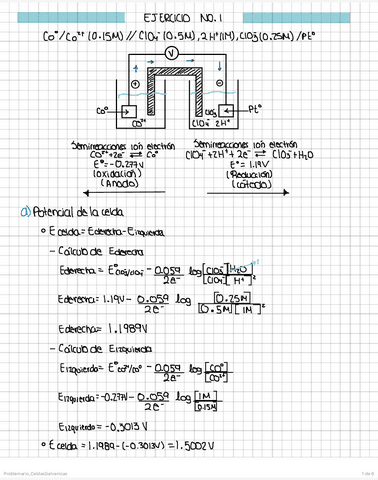 EJERCICIO NO. 1
Co°/Co²⁺ (0.15M) // ClO₄⁻ (0.5M), 2H⁺ (1M), ClO₃⁻ (0.25M) / Pt°
V
Co°
Co²⁺
ClO₃⁻
ClO₄⁻ 2H⁺
Pt°
Semirreacciones ion electrón
Co²⁺ + 2e⁻ ⇌ Co°
E° = -0.277V
(Oxidación)
(Ánodo)
Semirreacciones ion electrón
ClO₄⁻ + 2H⁺ + 2e⁻ ⇌ ClO₃⁻ + H₂O
E° = 1.19V
(Reducción)
(Cátodo)
a) Potencial de la celda
° E celda = E derecha - E izquierda
- Cálculo de E derecha
E derecha = E° ClO₄⁻/ClO₃⁻ - 0.059/2e⁻ log [ClO₃⁻][H₂O]/[ClO₄⁻][H⁺]²
E derecha = 1.19V - 0.059/2e⁻ log [0.25M]/[0.5M][1M]²
E derecha = 1.1989V
- Cálculo de E izquierda
E izquierda = E° Co²⁺/Co° - 0.059/2e⁻ log [Co°]/[Co²⁺]
E izquierda = -0.277V - 0.059/2e⁻ log [1M]/[0.15M]
E izquierda = -0.3013 V
° E celda = 1.1989 - (-0.3013V) = 1.5002V
1 de 8